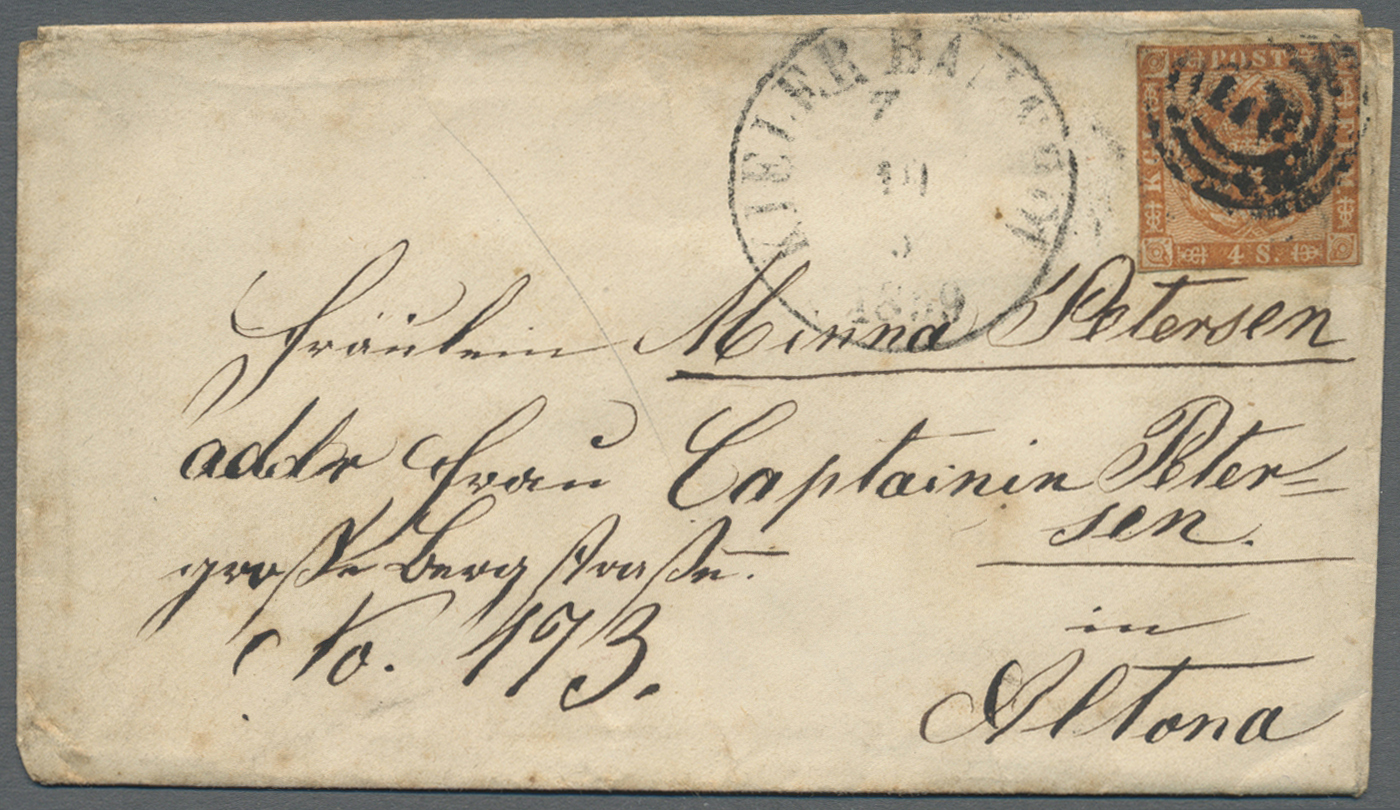 KIELER BAHNHOF
7
1859
POST
KGL
4 S.
Fräulein Minna Petersen
addr Frau Captainin Peter=
sen.
große Bergstraße.
No. 173.
in
Altona